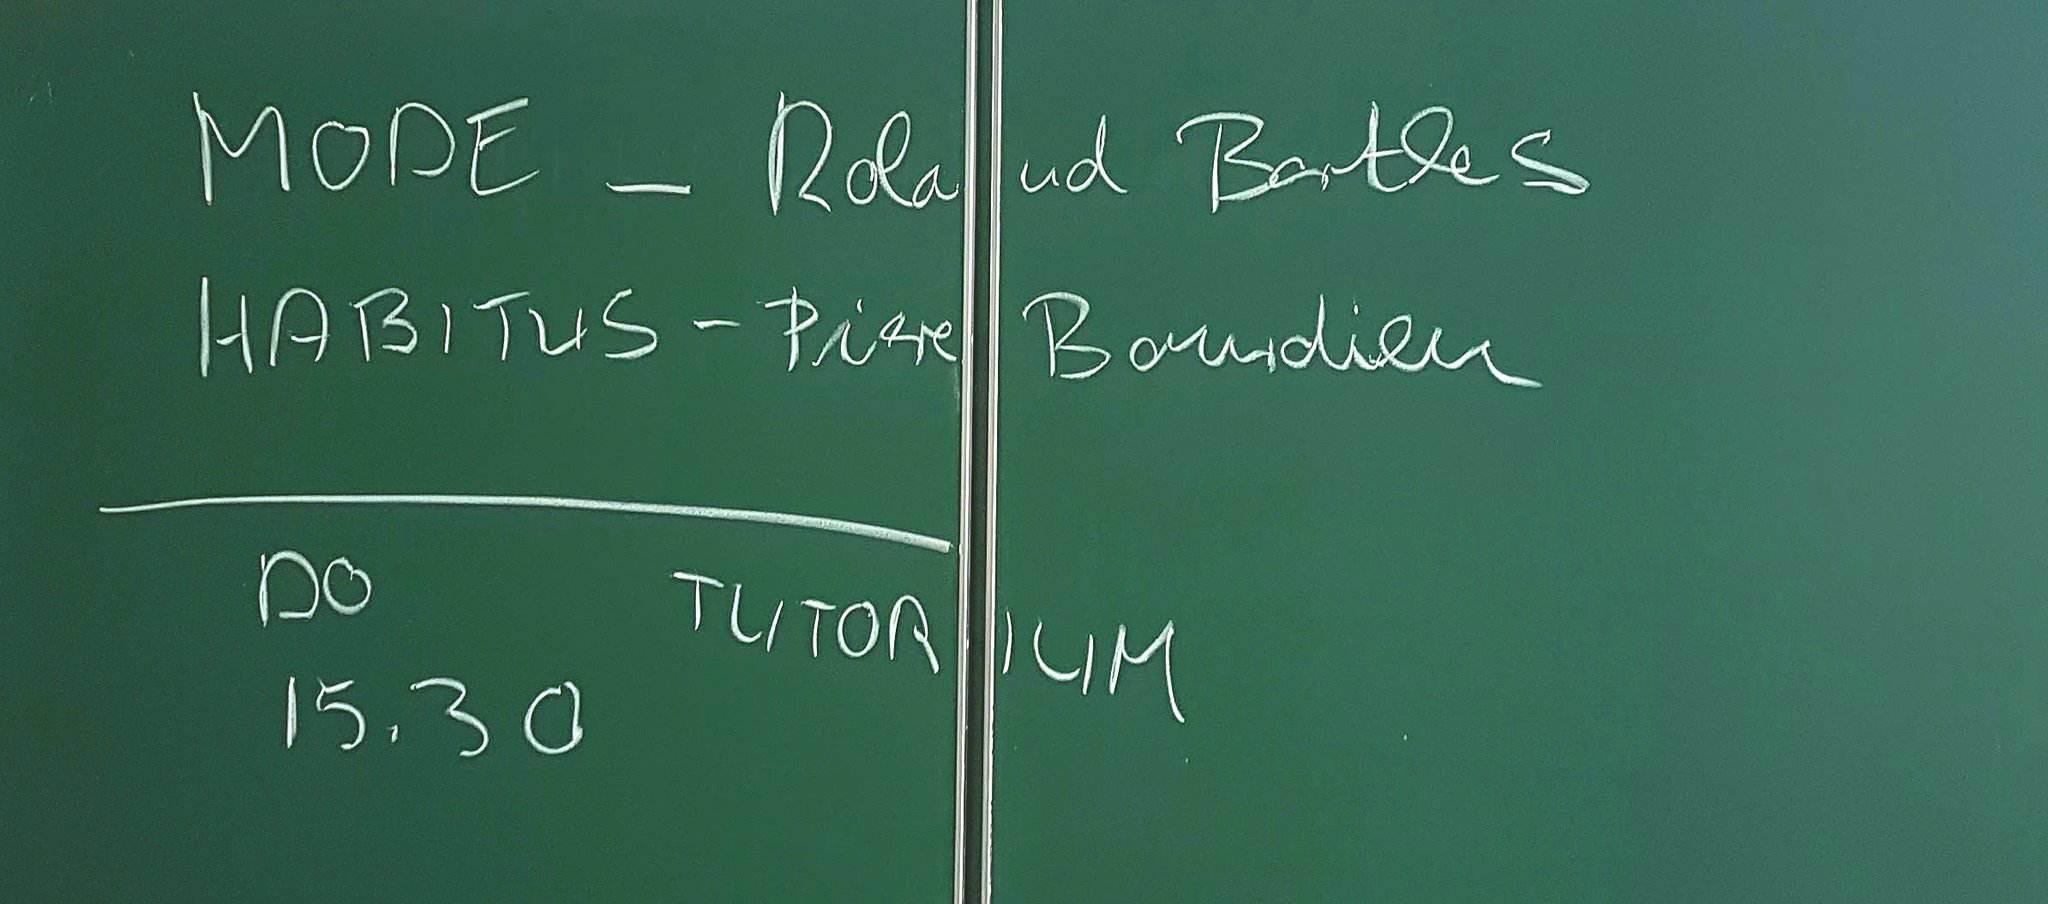 MODE – Roland Barthes
HABITUS – Pierre Bourdieu
DO TUTORIUM
15.30